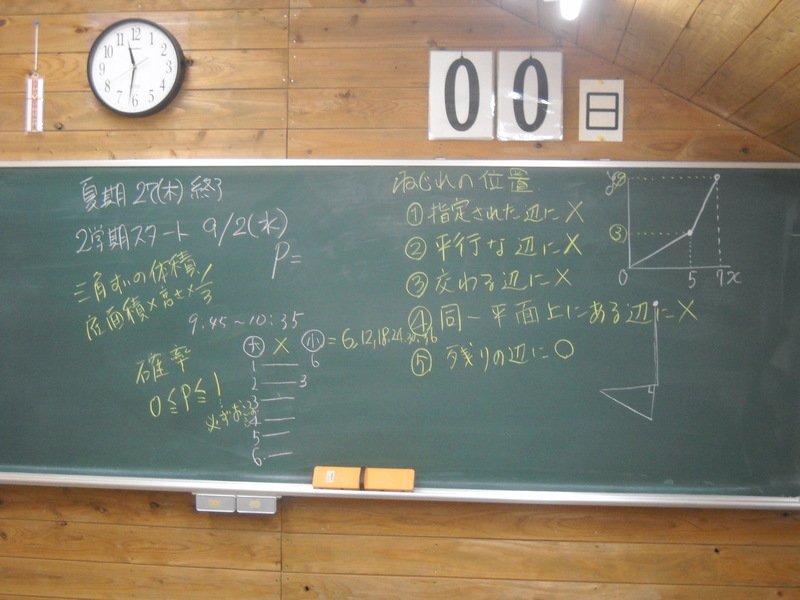 00日
夏期 27(木)終了
2学期スタート 9/2(水)
P=
三角すいの体積
底面積×高さ×1/3
9:45~10:35
確率
0≦P≦1
必ずおこる
大 × 小 = 6,12,18,24,30,36
1 6
2 3
3
4
5
6
ねじれの位置
①指定された辺に×
②平行な辺に×
③交わる辺に×
④同一平面上にある辺に×
⑤残りの辺に○
y
③
0 5 7 x
12 1 2 3 4 5 6 7 8 9 10 11